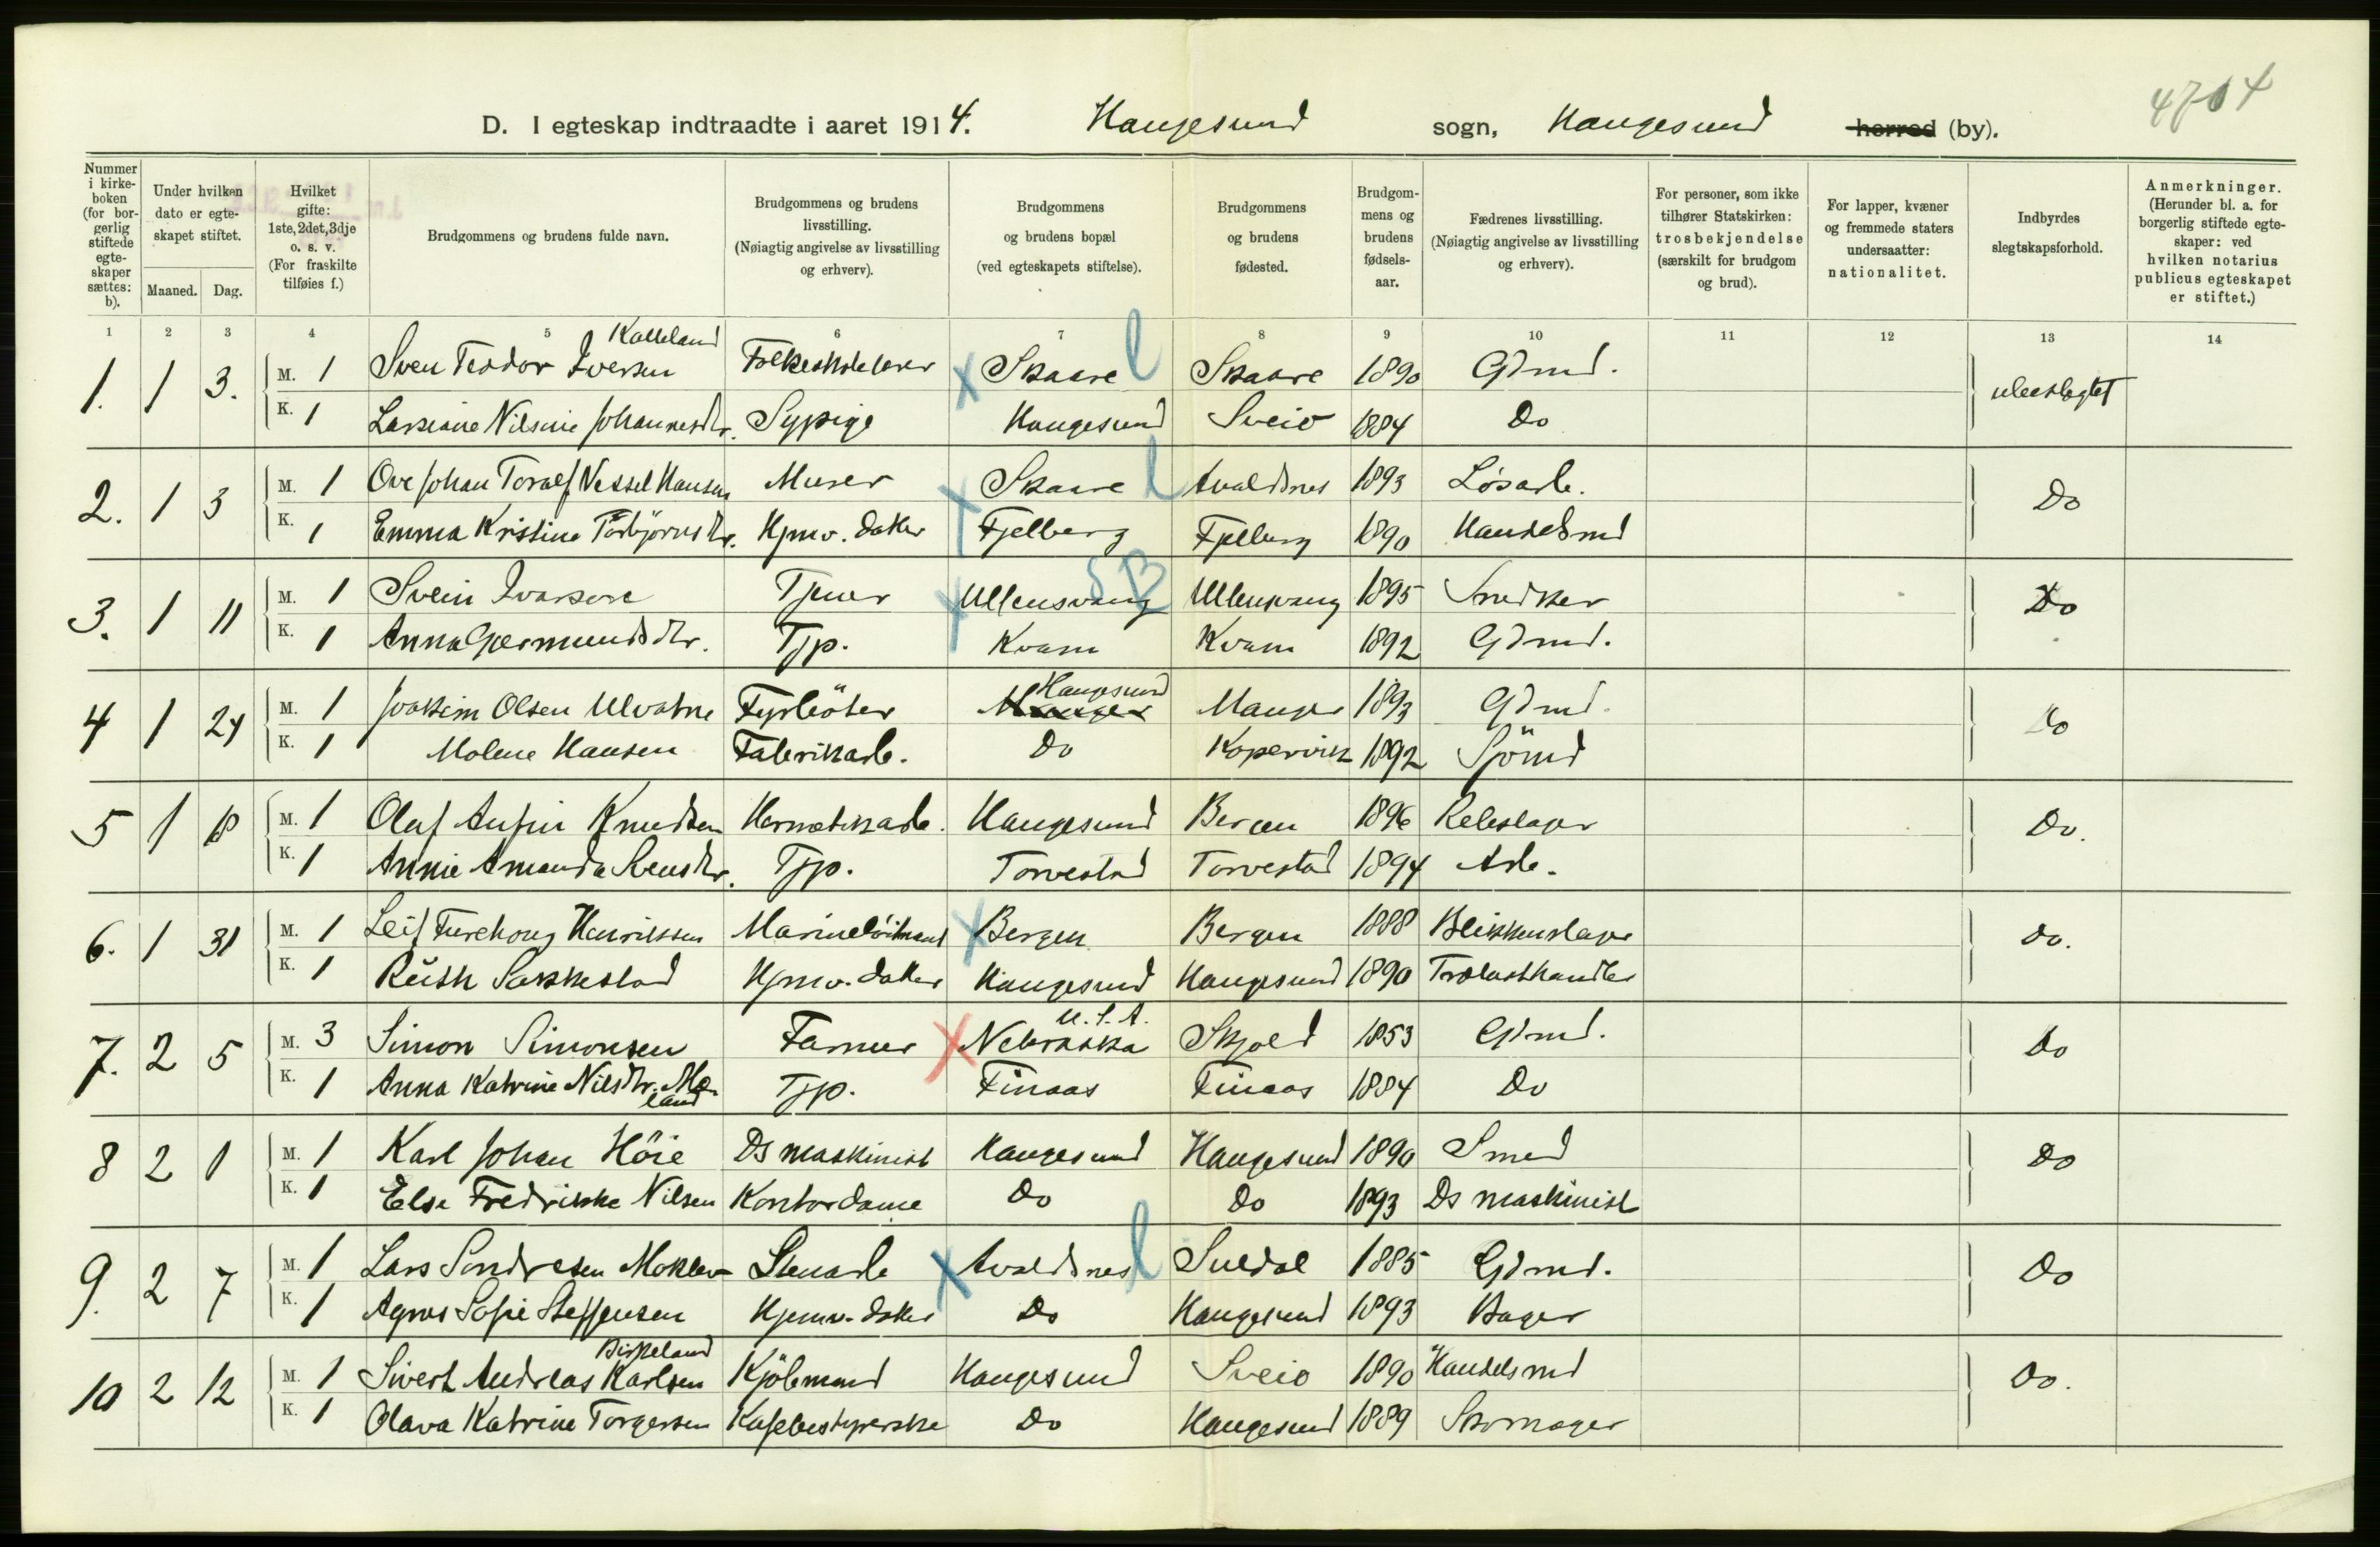 4704
D. I egteskap indtraadte i aaret 1914. Haugesund sogn, Haugesund herred (by).
Nummer i kirke-boken (for bor-gerlig stiftede egte-skaper sættes: b).
Under hvilken dato er egte-skapet stiftet.
Maaned. Dag.
Hvilket gifte: 1ste, 2det, 3dje o. s. v. (For fraskilte tilføies f.)
Brudgommens og brudens fulde navn.
Brudgommens og brudens livsstilling. (Nøiagtig angivelse av livsstilling og erhverv).
Brudgommens og brudens bopæl (ved egteskapets stiftelse).
Brudgommens og brudens fødested.
Brudgom-mens og brudens fødsels-aar.
Fædrenes livsstilling. (Nøiagtig angivelse av livsstilling og erhverv).
For personer, som ikke tilhører Statskirken: trosbekjendelse (særskilt for brudgom og brud).
For lapper, kvæner og fremmede staters undersaatter: nationalitet.
Indbyrdes slegtskapsforhold.
Anmerkninger. (Herunder bl. a. for borgerlig stiftede egte-skaper: ved hvilken notarius publicus egteskapet er stiftet.)
1 2 3 4 5 6 7 8 9 10 11 12 13 14
Kalleland
1. 1 3. M. 1 Sven Teodor Iversen Folkeskolelærer Skaare l Skaare 1890 Gdmd. ubeslægtet
K. 1 Larsiane Nilsine Johannesdtr. Sypige Haugesund Sveio 1884 Do
2. 1 3 M. 1 Ove Johan Toralf Nessel Hansen Murer Skaare l Avaldsnes 1893 Løsarb. Do
K. 1 Emma Kristine Torbjörnsdtr. Hjmv. datter Fjelberg Fjelberg 1890 Handelsmd
3. 1 11 M. 1 Svein Ivarsen Tjener Ullensvang SB Ullensvang 1895 Snedker Do
K. 1 Anna Germundsdtr. Tjp. Kvam Kvam 1892 Gdmd.
Haugesund
4 1 24 M. 1 Joakim Olsen Ulvatne Fyrböter Manger Manger 1893 Gdmd. Do
K. 1 Molene Hansen Fabrikarb. Do Kopervik 1892 Sjömd
5 1 18 M. 1 Olaf Anfin Knudsen Hermetikkarb. Haugesund Bergen 1896 Rebslager Do.
K. 1 Annie Amanda Svensdtr. Tjp. Torvestad Torvestad 1894 Arb.
6. 1 31 M. 1 Leif Furchong Henrikssen Marinelöitnant Bergen Bergen 1888 Blikkenslager do.
K. 1 Ruth Sakkestad Hjmv. datter Haugesund Haugesund 1890 Trælasthandler
U.S.A.
7. 2 5 M. 3 Simon Simonsen Farmer Nebraska Skjold 1853 Gdmd. Do
K. 1 Anna Katrine Nilsdtr. Mæ- Tjp. Finaas Finaas 1884 Do
land
8 2 1 M. 1 Karl Johan Höie Ds maskinist Haugesund Haugesund 1890 Smed Do
K. 1 Else Fredrikke Nilsen Kontordame Do Do 1893 Ds maskinist
9. 2 7 M. 1 Lars Sondresen Moklev Stenarb Avaldsnes l Suldal 1885 Gdmd. Do
K. 1 Agnes Sofie Steffensen Hjemv. datter Do Haugesund 1893 Bager
Birkeland
10 2 12 M. 1 Sivert Andreas Karlsen Kjöbmand Haugesund Sveio 1890 Handelsmd Do.
K. 1 Olava Katrine Torgersen Kafebestyrerske Do Haugesund 1889 Skomager